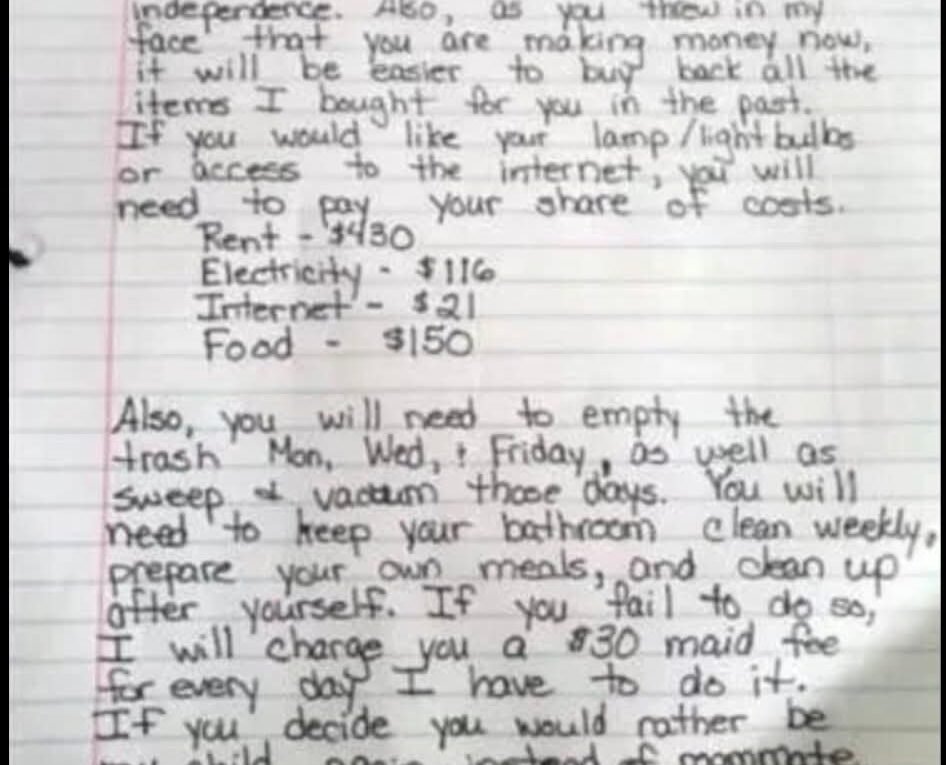 independence. Also, as you threw in my
face that you are making money now,
it will be easier to buy back all the
items I bought for you in the past.
If you would like your lamp/light bulbs
or access to the internet, you will
need to pay your share of costs.
Rent - $430
Electricity - $116
Internet - $21
Food - $150
Also, you will need to empty the
trash Mon, Wed, & Friday, as well as
sweep & vacuum those days. You will
need to keep your bathroom clean weekly,
prepare your own meals, and clean up
after yourself. If you fail to do so,
I will charge you a $30 maid fee
for every day I have to do it.
If you decide you would rather be
my child again instead of roommate